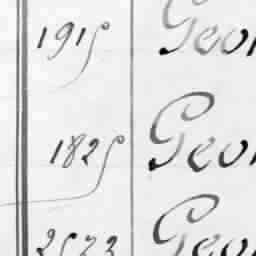 1915 Geor
1825 Geor
2573 Geor